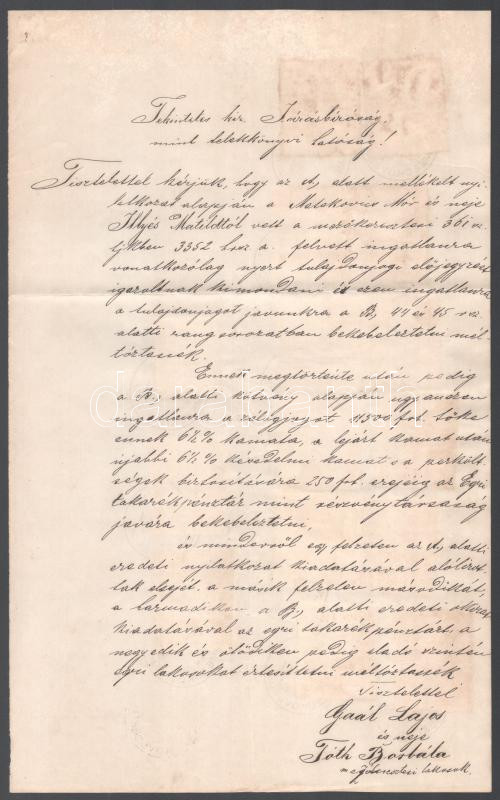 Tekintetes kir. Járásbíróság,
mint telekkönyvi hatóság!
Tisztelettel kérjük, hogy az A, alatt mellékelt nyi
latkozat alapján a Matskovics Mór és neje
Illyés Matildtól vett a mezőkeresztesi 361 sz.
tjkben 3352 hrsz a. felvett ingatlanra
vonatkozólag nyert tulajdonjogi előjegyzést
igazoltnak kimondani és ezen ingatlanra
a tulajdonjogot javunkra a B, 44 és 45 sz.
alatti rangsorozatban bekebeleztetni mél-
tóztassék.
Ennek megtörténte után pedig
a B, alatti kötvény alapján ugyanezen
ingatlanra a zálogjogot 1500 frt. tőke
ennek 6½% kamata, a lejárt kamat után
újabbi 6½% késedelmi kamat s a perkölt-
ségek biztosítására 250 frt. erejéig az Egri
takarékpénztár mint részvénytársaság
javára bekebeleztetni,
és mindezről egy felzeten az A, alatti
eredeti nyilatkozat kiadatásával alólírot-
tak elsejét, a másik felzeten másodikát,
a harmadikon a B, alatti eredeti okirat
kiadatásával az egri takarékpénztárt, a
negyedik és ötödiken pedig eladó szintén
egri lakosokat értesíttetni méltóztassék
Tisztelettel
Gaál Lajos
és neje
Tóth Borbála
lakosok.
darabanth